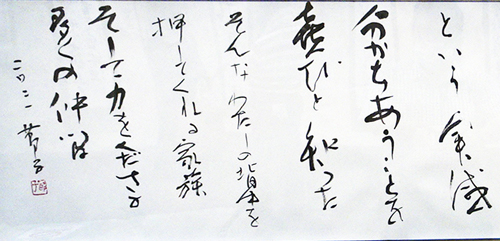 という 実感
分かちあうことを
喜びと知った
そんな わたしの背中を
押してくれる家族
そして力をくださる
多くの仲間